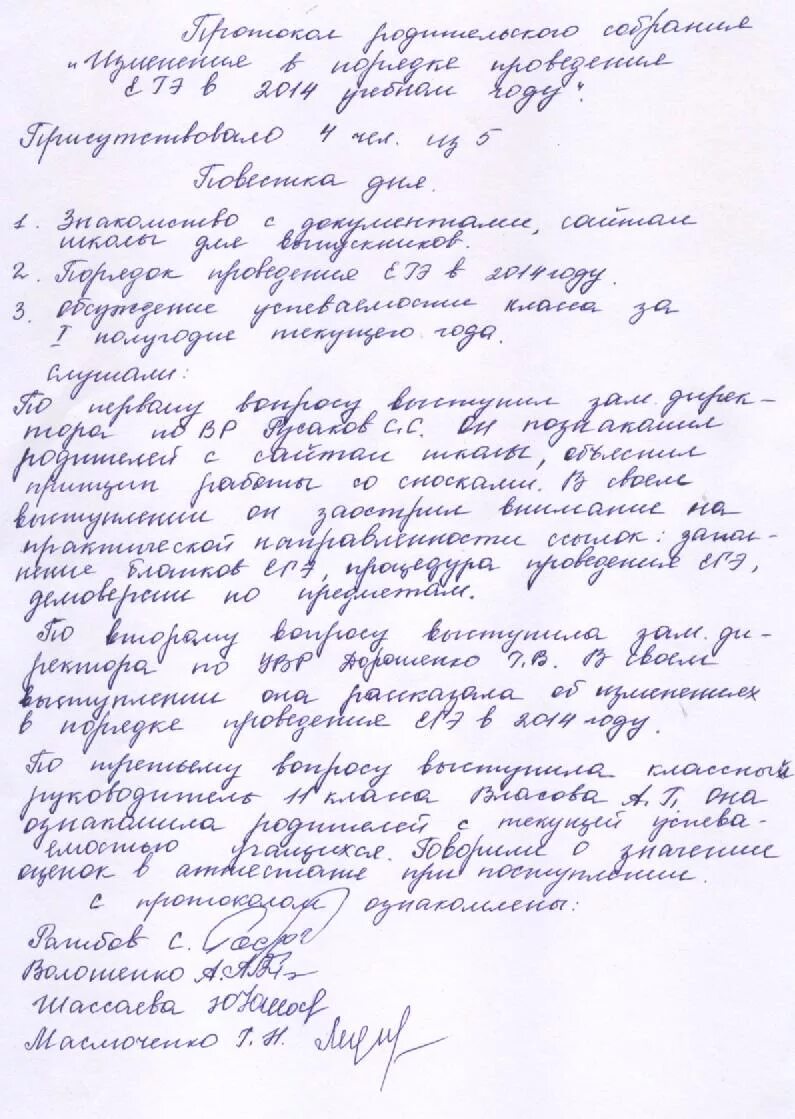 Протокол родительского собрания
"Изменения в порядке проведения
ЕГЭ в 2014 учебном году".
Присутствовало 4 чел. из 5
Повестка дня.
1. Знакомство с документами, сайтом
школы для выпускников.
2. Порядок проведения ЕГЭ в 2014 году.
3. Обсуждение успеваемости класса за
I полугодие текущего года.
Слушали:
По первому вопросу выступил зам. дирек-
тора по ВР Русаков С.С. Он познакомил
родителей с сайтом школы, объяснил
принцип работы со сносками. В своем
выступлении он заострил внимание на
практической направленности ссылок: запол-
нение бланков ЕГЭ, процедура проведения ЕГЭ,
демоверсии по предметам.
По второму вопросу выступила зам. ди-
ректора по УВР Дорошенко Т.В. В своем
выступлении она рассказала об изменениях
в порядке проведения ЕГЭ в 2014 году.
По третьему вопросу выступила классный
руководитель 11 класса Власова А.Г. она
ознакомила родителей с текущей успева-
емостью учащихся. Говорили о значении
оценок в аттестате при поступлении.
С протоколом ознакомлены:
С.
Волошенко А.А.
Шассаева
Масмоченко Г.Н.